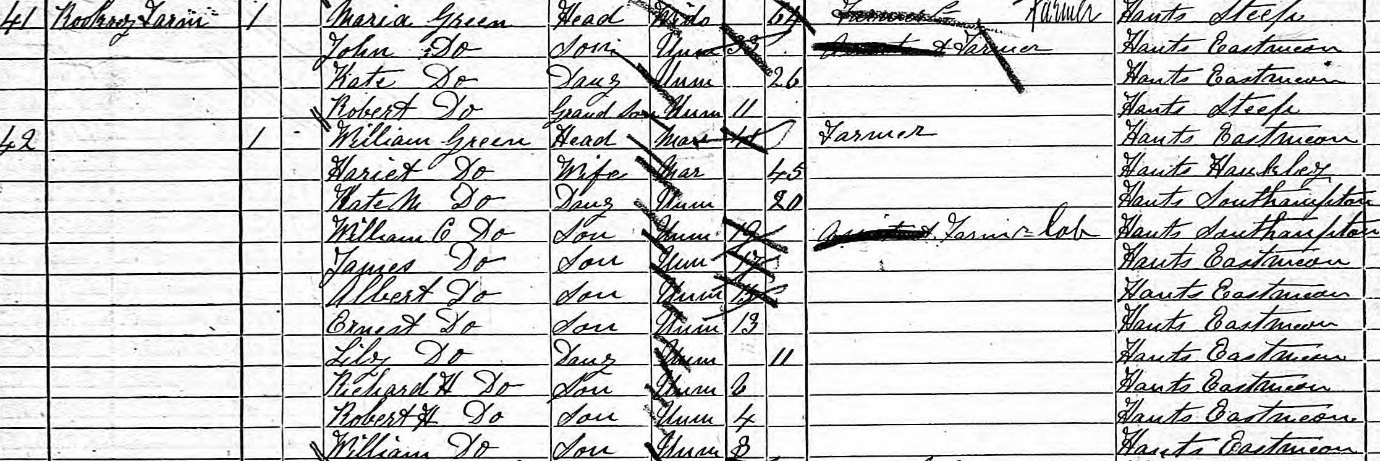 41 Rookroy Farm 1 Maria Green Head Wido 64 Farmer Hants Steep
John Do Son Unm 33 Farmer Hants Eastmeon
Kate Do Daug Unm 26 Hants Eastmeon
Robert Do Grand Son Unm 11 Hants Steep
42 1 William Green Head Mar Farmer Hants Eastmeon
Hariet Do Wife Mar 45 Hants Hawkley
Kate M Do Daug Unm 20 Hants Southampton
William C Do Son Unm 19 Farm lab Hants Southampton
James Do Son Unm 17 Hants Eastmeon
Albert Do Son Unm Hants Eastmeon
Ernest Do Son Unm 13 Hants Eastmeon
Lily Do Daug Unm 11 Hants Eastmeon
Richard H Do Son Unm 6 Hants Eastmeon
Robert H Do Son Unm 4 Hants Eastmeon
William Do Son Unm Hants Eastmeon